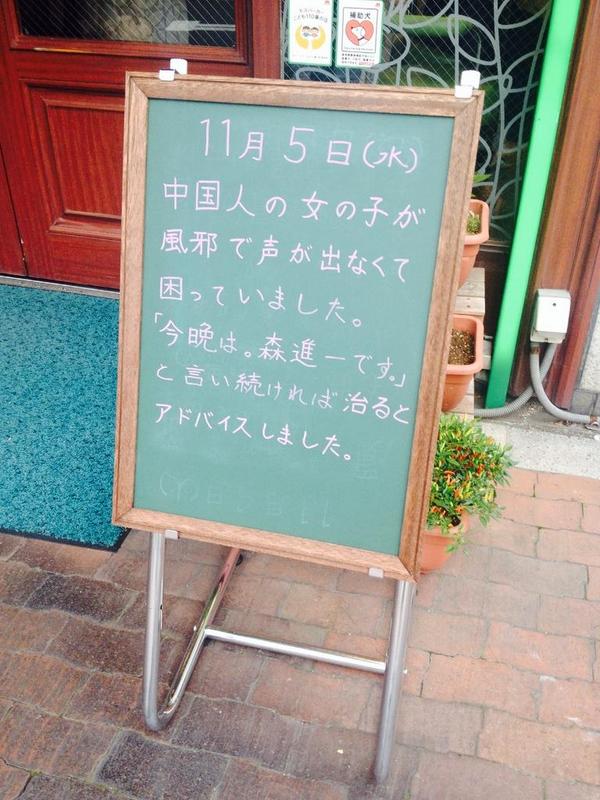 補助犬
11月5日(水)
中国人の女の子が
風邪で声が出なくて
困っていました。
「今晩は。森進一です。」
と言い続ければ治ると
アドバイスしました。